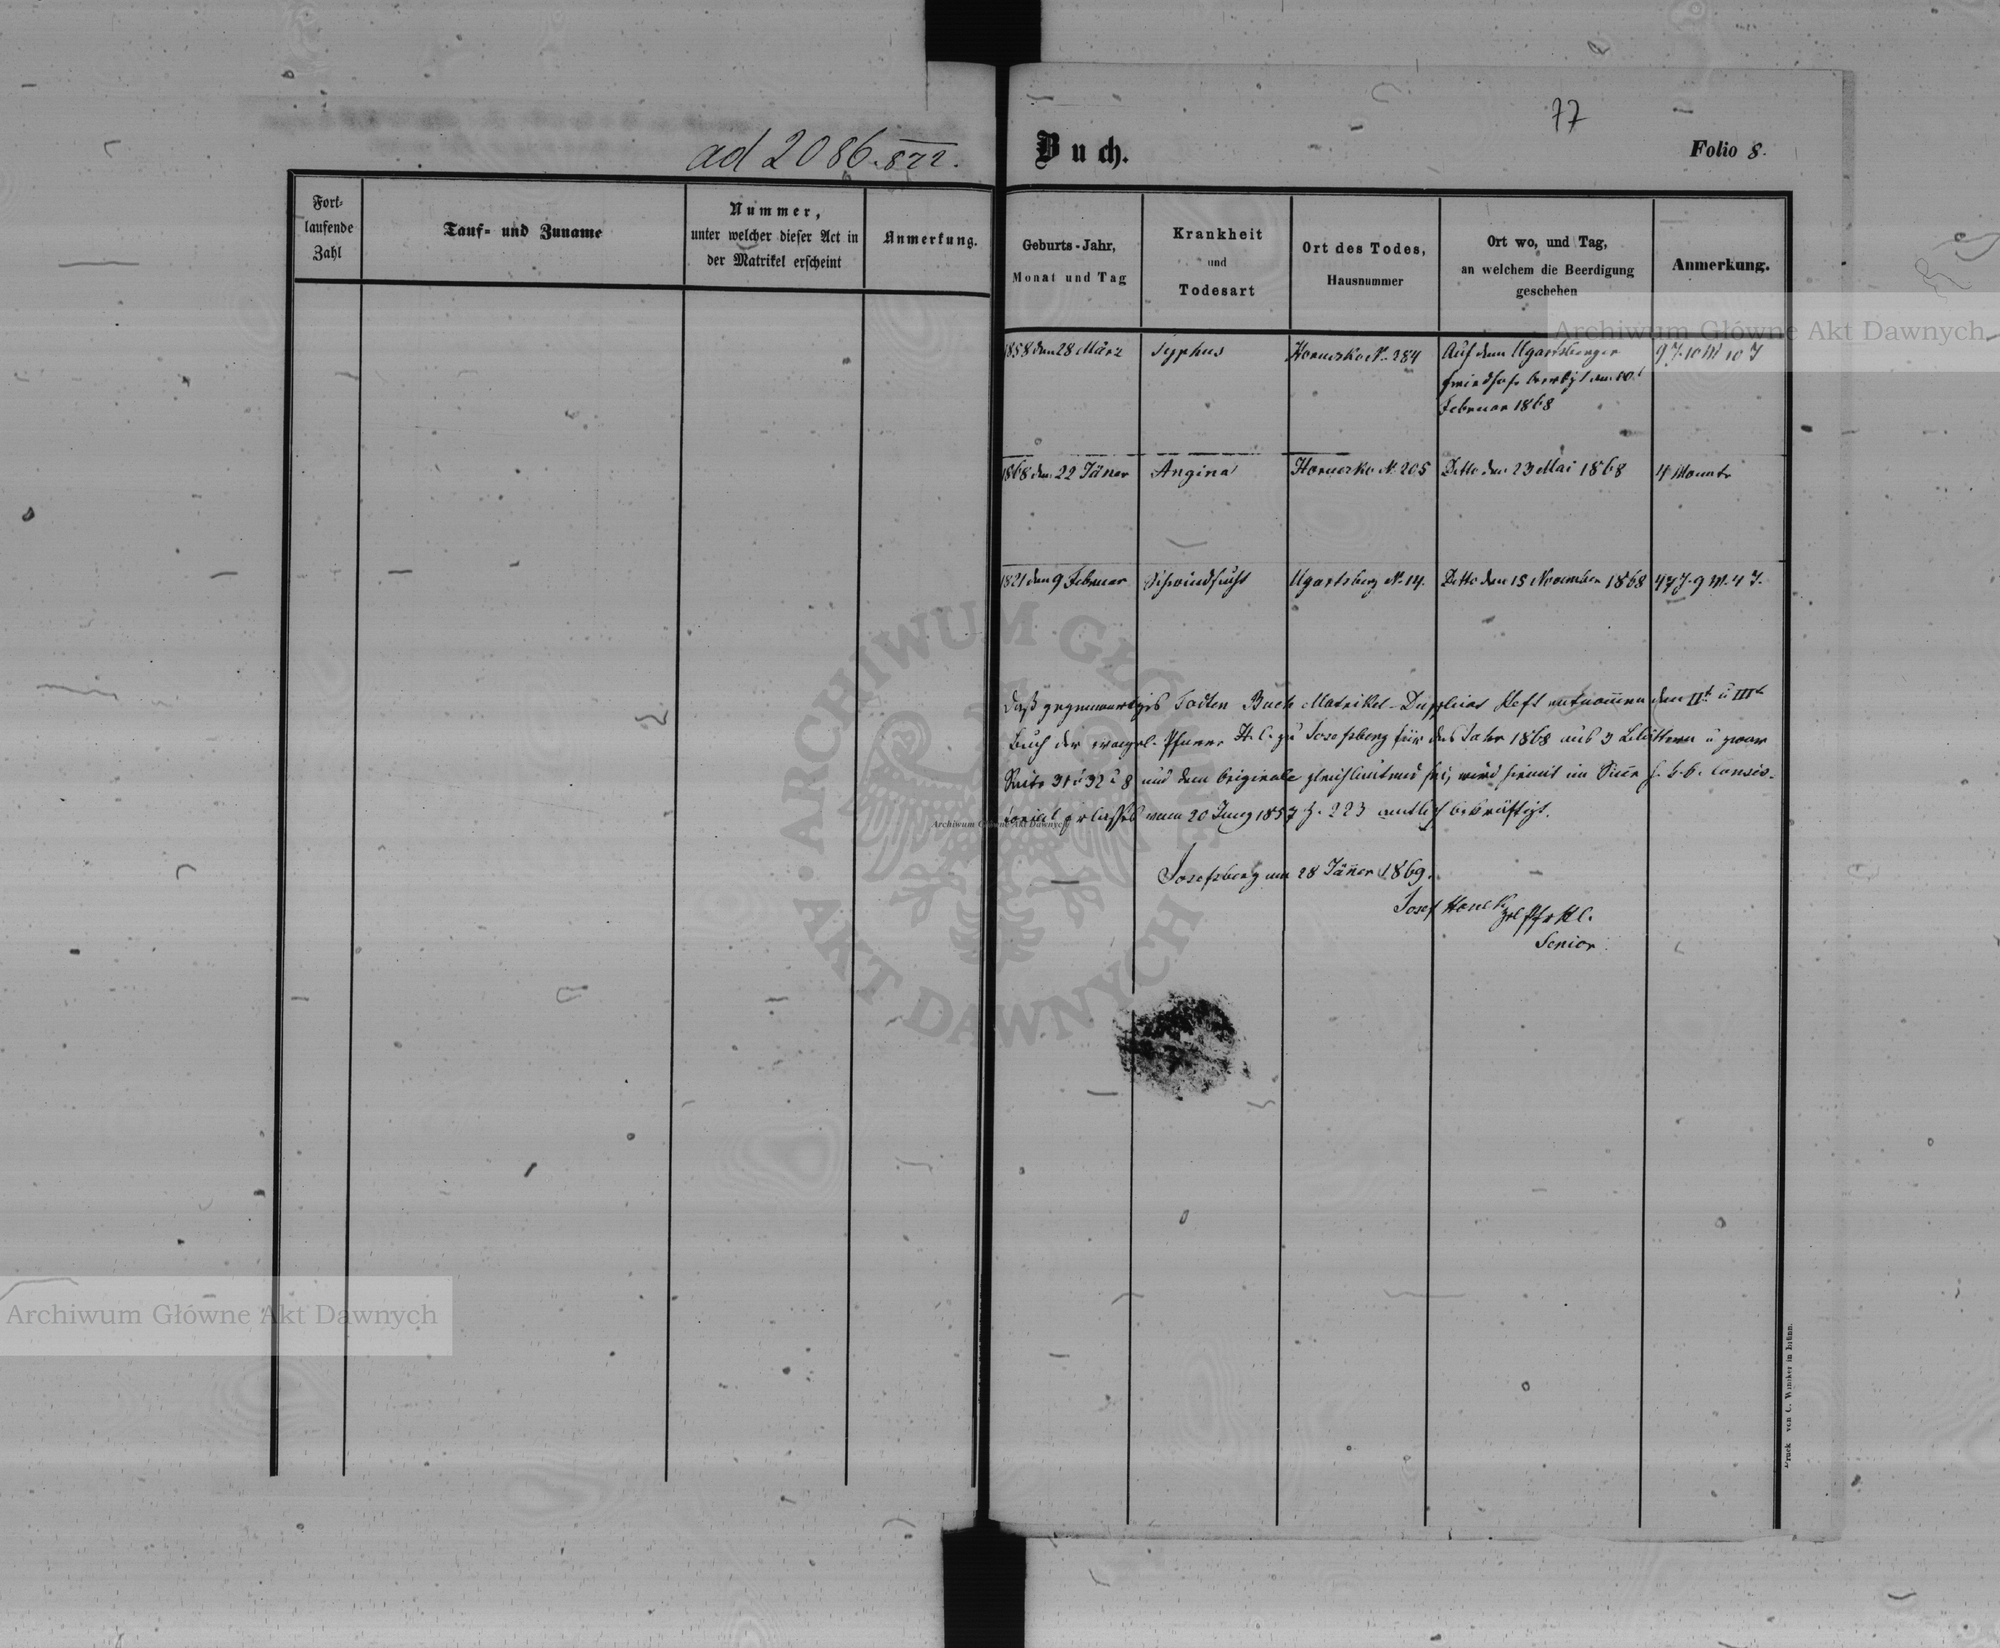 ad 2086.872.
Fort-
laufende
Zahl
Tauf- und Zuname
Nummer,
unter welcher dieser Act in
der Matrikel erscheint
Anmerkung.
77
Buch.
Folio 8.
Geburts-Jahr,
Monat und Tag
Krankheit
und
Todesart
Ort des Todes,
Hausnummer
Ort wo, und Tag,
an welchem die Beerdigung
geschehen
Anmerkung.
1858 den 28 März
Typhus
Horucko N. 284
Auf dem Ugartsberger
Friedhofe beerdigt am 10t
Februar 1868
9 J. 10 M 10 T
1868 den 22 Jäner
Angina
Horucko N. 205
Detto den 23 Mai 1868
4 Monate
1821 den 9 Februar
Schwindsucht
Ugartsberg N. 14.
Detto den 15 November 1868
47 J. 9 M. 4 T.
Daß gegenwärtiges Todten Buch Matrikel-Duplicat Heft entnommen dem IIt u IIIt
Buch der evangel. Pfarre H. C. zu Josefsberg für das Jahr 1868 aus 3 Blättern u zwar
Seite 31 u 32 u 8 und dem Originale gleichlautend sei, wird hiemit im Sinne h. k. k. Consis-
torial Erlasses vom 20 Juny 1857 Z. 223 amtlich bekräftigt.
Josefsberg am 28 Jäner 1869.
Josef Hanek
Senior
Druck von C. Winiker in Brünn.
Archiwum Główne Akt Dawnych
Archiwum Główne Akt Dawnych
Archiwum Główne Akt Dawnych
ARCHIWUM GŁÓWNE
AKT DAWNYCH